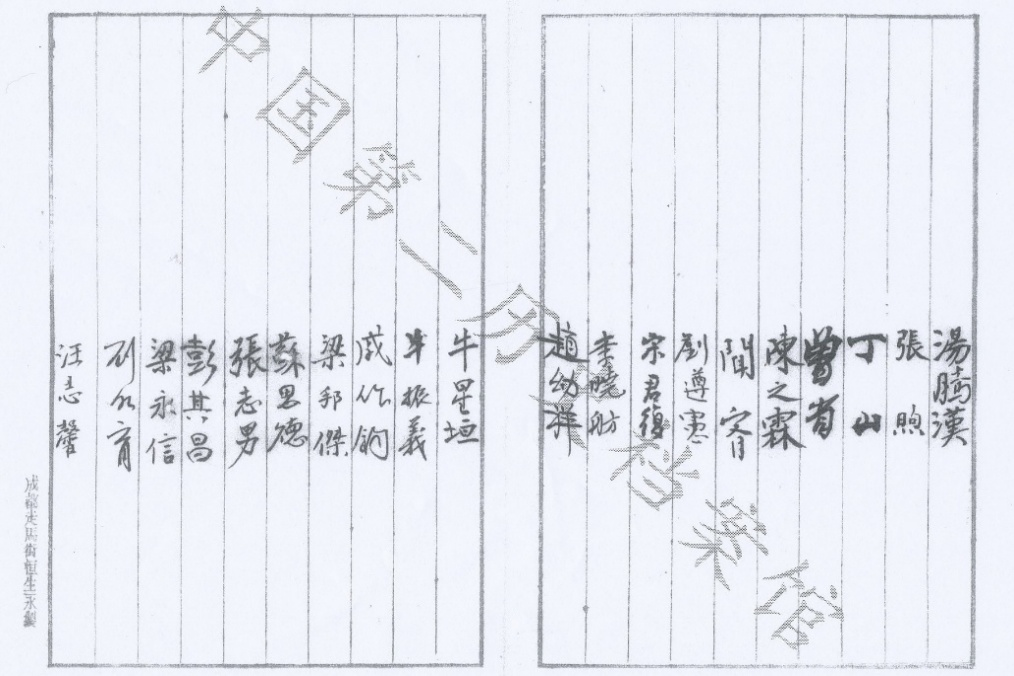 湯騰漢
張煦
丁山
曾省
陳之霖
閻宥
劉遵憲
宗君復
李曉舫
趙幼祥
牛星垣
羊振義
咸作鈞
梁邦傑
蘇思德
張志男
彭其昌
梁永信
育
汪志馨
成都走馬街恒生永製
中国第二历史档案馆